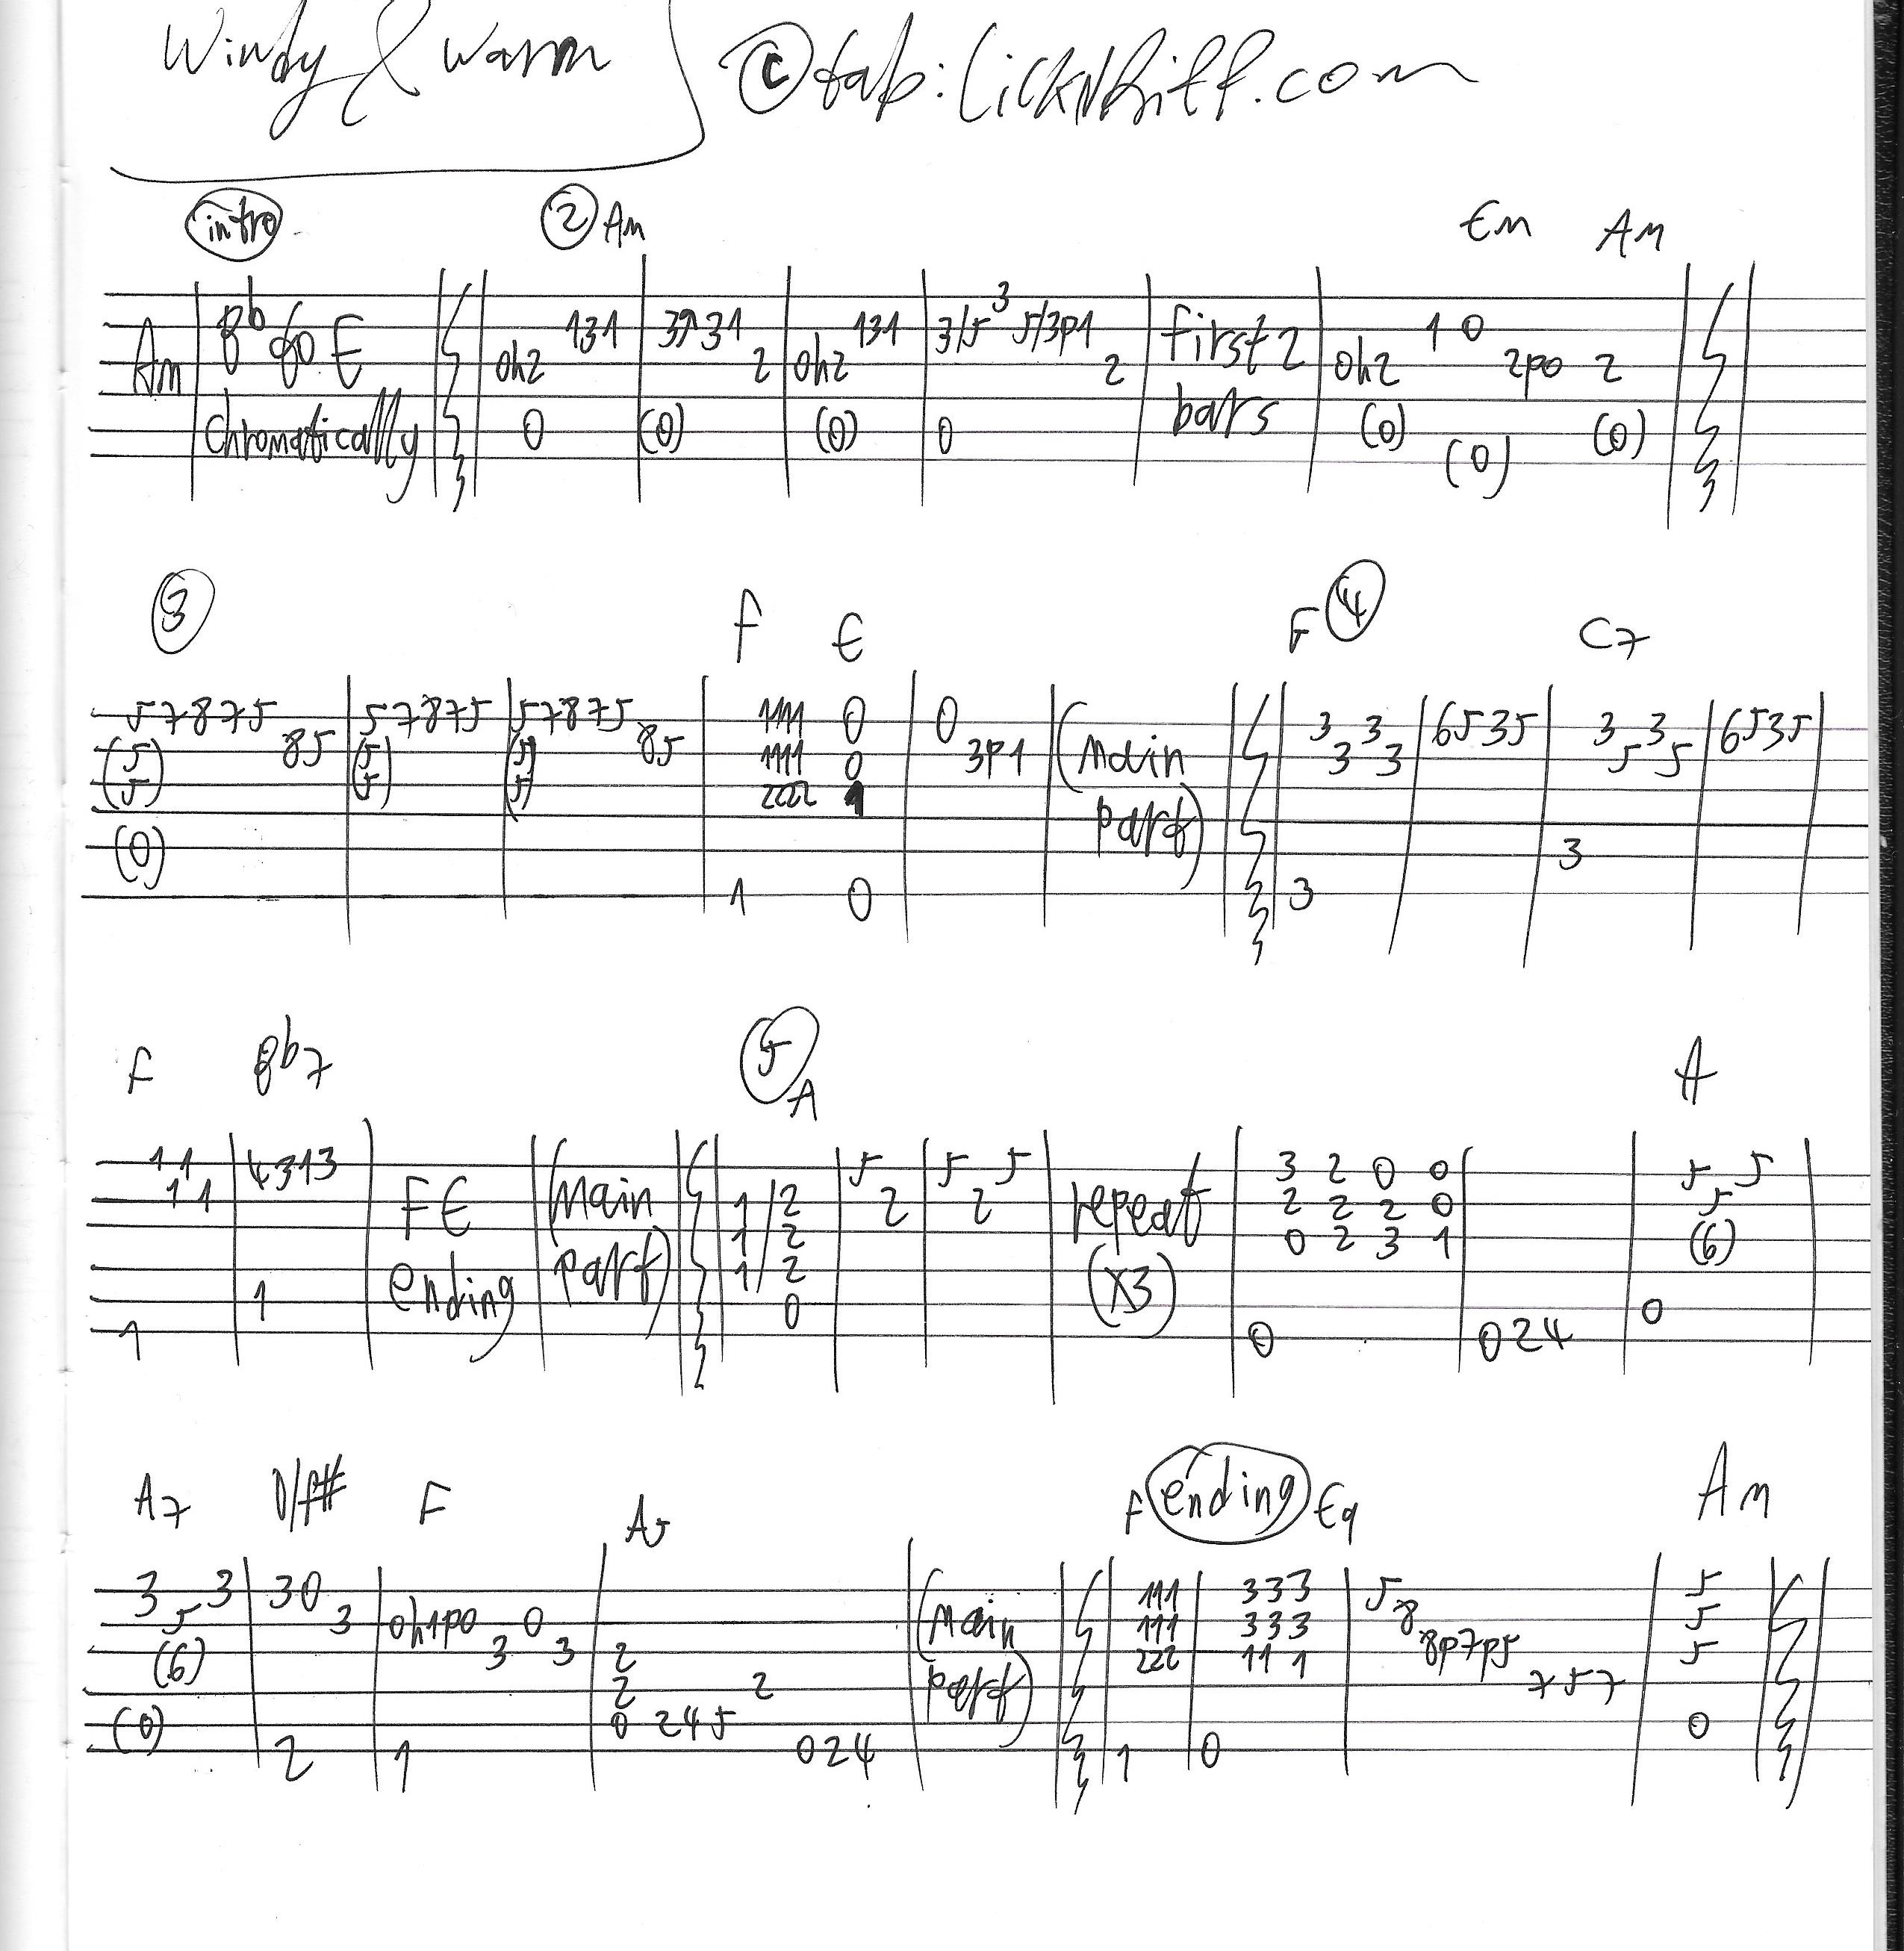 Windy & Warm © tab: LickNRiff.com
intro ② Am Em Am
Am Bb to E 131 3131 131 3/5 3 5/3p1 first 2 1 0
0h2 2 0h2 2 0h2 2p0 2
chromatically 0 (0) (0) 0 bars (0) (0) (0)
③ F E F ④ C7
57875 57875 57875 1111 0 0 3 3 6535 3 3 6535
(5) 85 (5) (5) 85 1111 0 3p1 (main 3 3 5 5
(5) (5) (5) 2222 1
part)
(0) 3
1 0 3
F Bb7 ⑤ A A
11 4313 5 5 5 3 2 0 0 5 5
11 FE (main 1/2 2 2 repeat 2 2 2 0 5
1/2 0 2 3 1 (6)
ending part) 1/2 (x3)
1 0 0
1 0 0 2 4
A7 D/F# F A5 F ending E9 Am
3 3 30 111 333 5 5
5 3 0h1p0 0 (main 111 333 8 5
(6) 3 3 2 222 11 1 8p7p5 5
2 2 part) 7 5 7
(0) 0 2 4 5 0
2 1 0 2 4 1 0